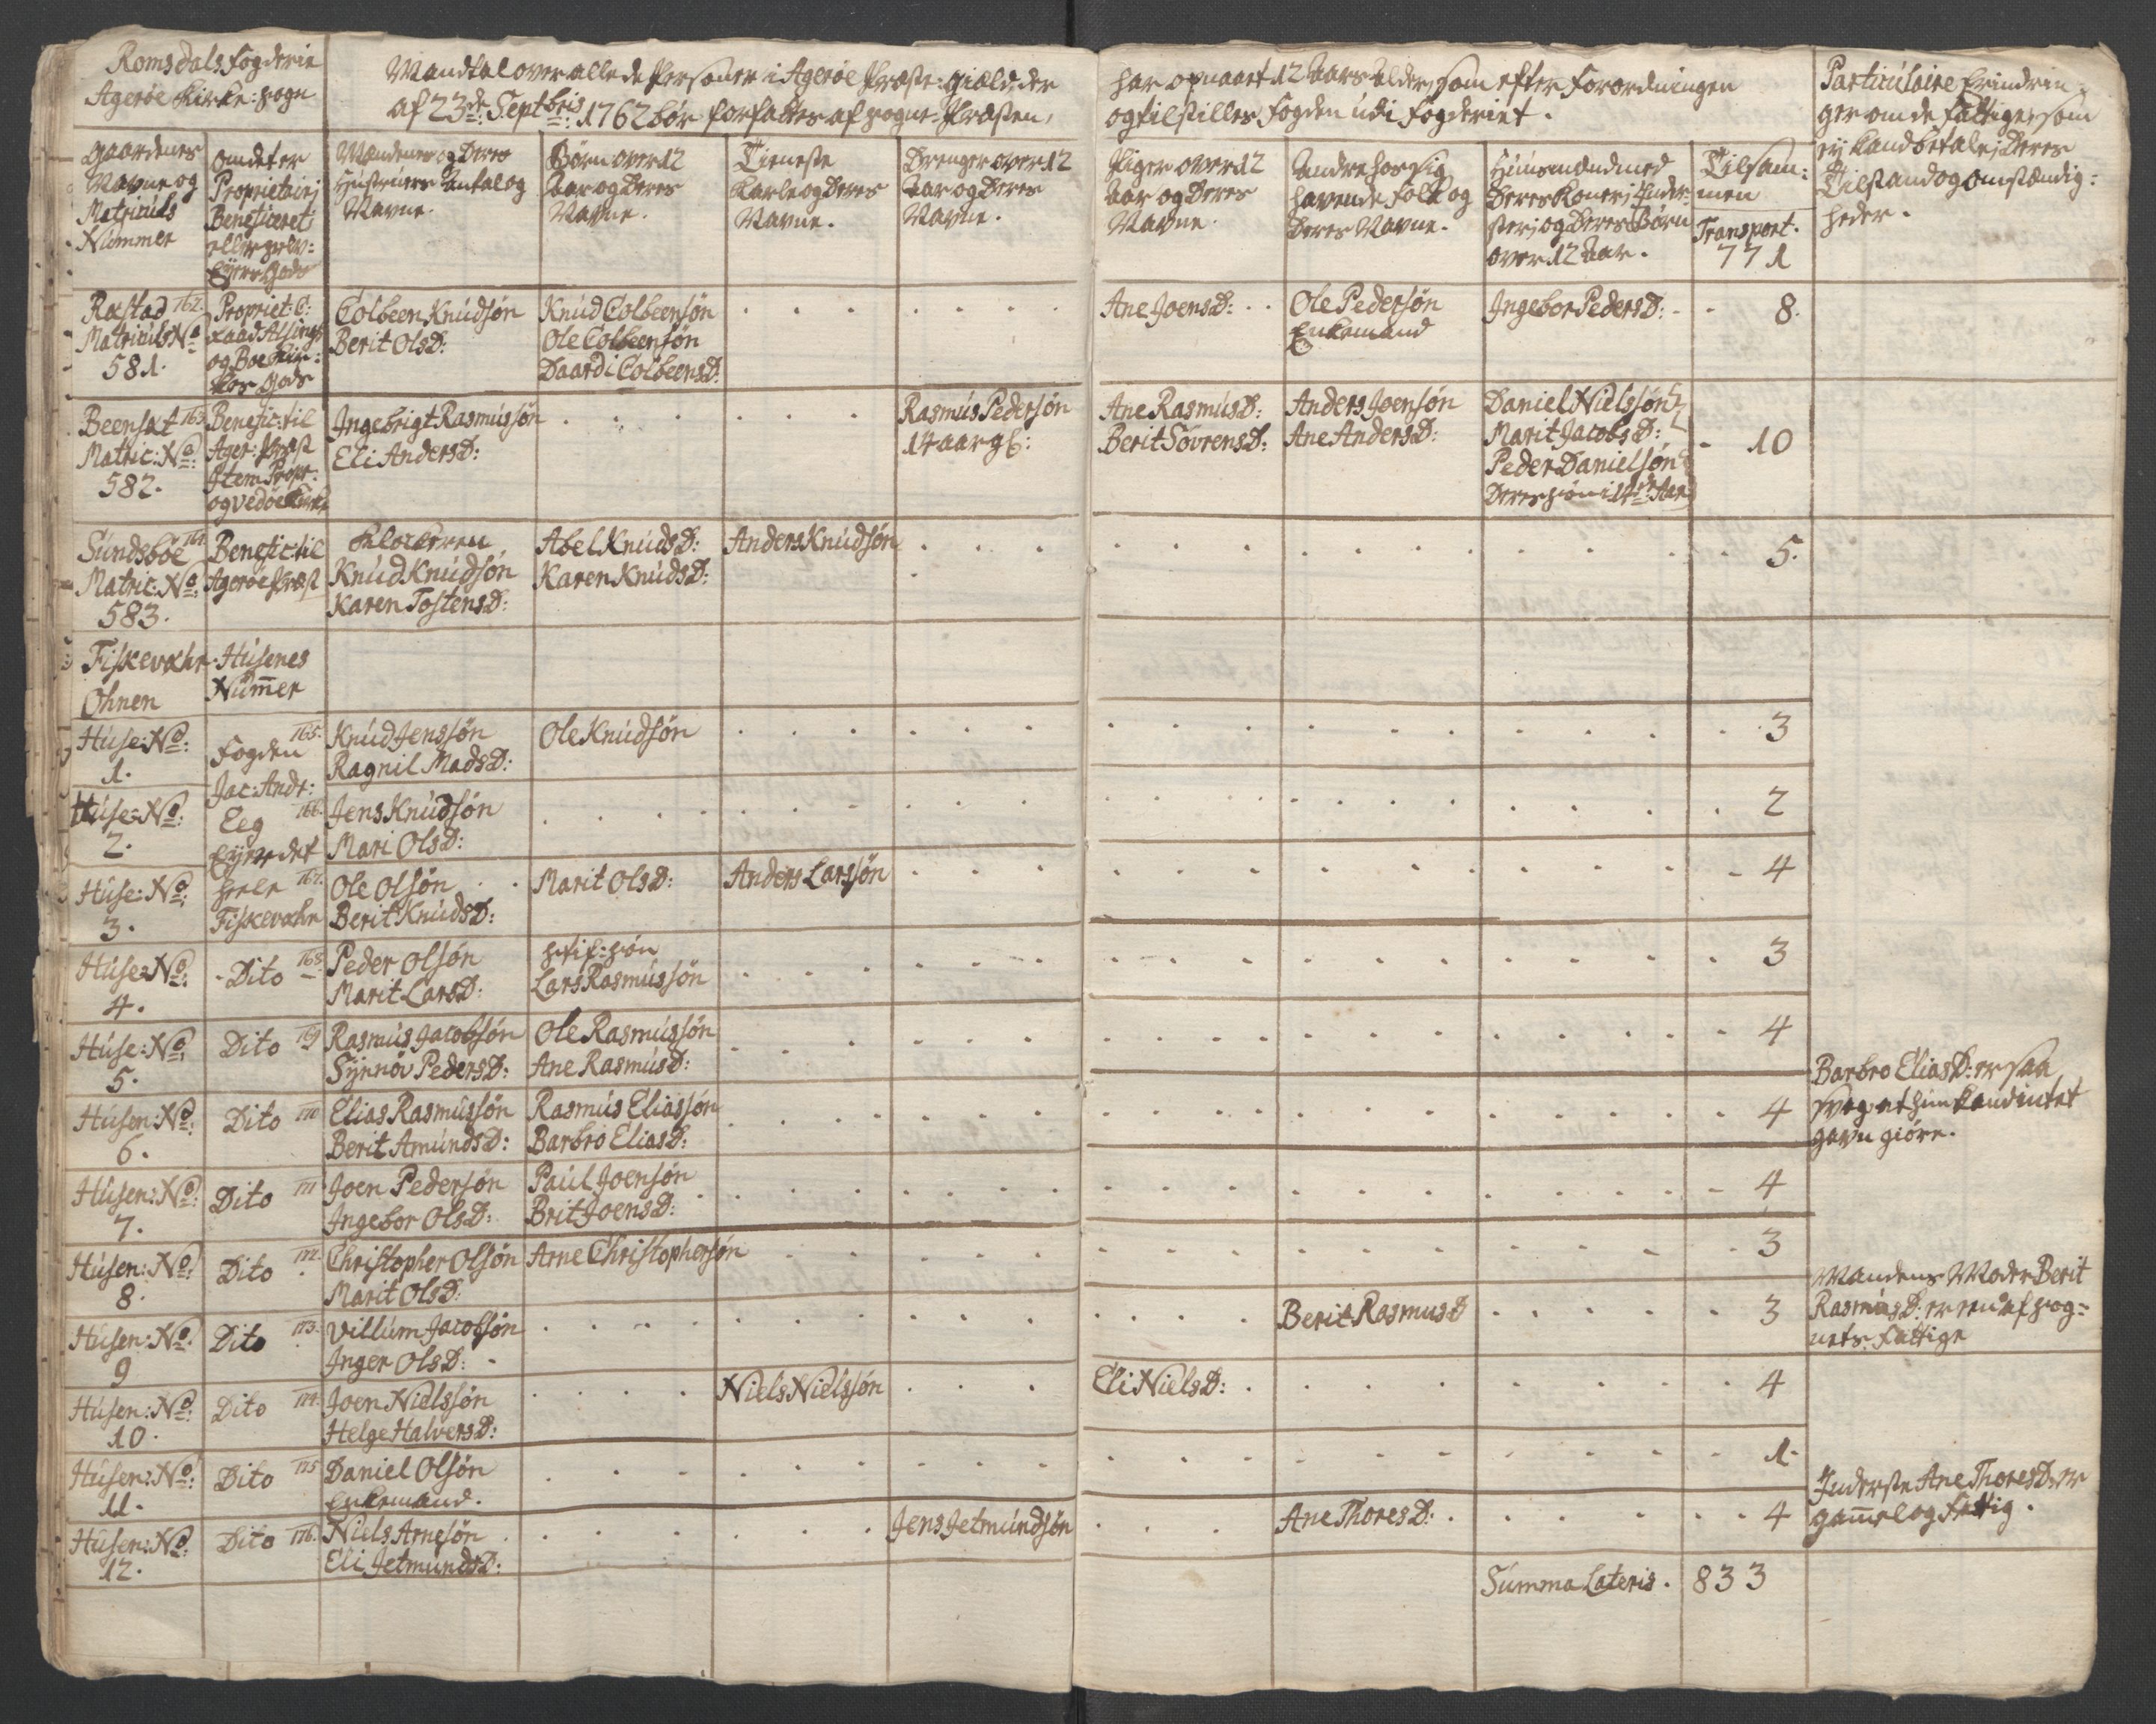 Romsdals Fogderie
Agerøe Kirke-Sogn
Mandtal over alle de Personer i Agerøe Præste-Giæld, der
af 23de Septbris 1762 bør forfattes af Sogne-Præsten,
har opnaaet 12 Aars Alder, som efter Forordningen
og tilstilles Fogden udi Fogderiet.
Particulaire Erindrin-
ger om de Fattige, som
ej kand betale, Deres
Tilstand og Omstændig-
heder.
Gaardenes
Navne og
Matriculs
Nummer
Om det er
Proprietairj
Beneficeret
eller Selv-
Eyers Gods
Mændenes og Deres
Hustruers Antal og
Navne.
Børn over 12
Aar og Deres
Navne.
Tieneste
Karle og Deres
Navne.
Drenger over 12
Aar og Deres
Navne.
Piger over 12
Aar og Deres
Navne.
Andre hos sig
havende Folk og
Deres Navne.
Huusmænd med
Deres Koner, Inder-
ster, og Deres Børn
over 12 Aar.
Tilsam-
men
Transport.
771
Røstad 162.
Matriculs No
581.
Propriet: C:
Raad Assings
og Boe Kir-
kes Gods
Colbeen Knudsøn
Berit OlsD:
Knud Colbeensøn
Ole Colbeensøn
Daardi ColbeensD:
Ane JoensD:
Ole Pedersøn
Enkemand
Ingebor PedersD:
8.
Beensæt 163
Matric: No:
582.
Benefic: til
Ager: Præst
Item Propr:
og Vedøe Kirke
Ingebrigt Rasmusøn
Eli AndersD:
Rasmus Pedersøn
14 aar gl:
Ane RasmusD:
Berit SøvrensD:
Anders Joensøn
Ane AndersD:
Daniel Nielssøn
Marit JacobsD:
Peder Danielsøn
Deres Søn i 14de Aar
10
Sundsbøe 164
Matric: No:
583.
Benefic: til
Agerøe Præst
Klockeren
Knud Knudsøn
Karen TostensD:
Abel KnudsD:
Karen KnudsD:
Anders Knudsøn
5.
Fiskevæhr
Ohnen
Husenes
Numer
Huse: No:
1.
165.
Fogden
Jac: Andr:
Eeg
Eyer det
heele
Fiskevæhr
Knud Jenssøn
Ragnil MadsD:
Ole Knudsøn
3
Huse: No:
2.
166.
Jens Knudsøn
Mari OlsD:
2
Huse: No:
3.
167.
Ole Olsøn
Berit KnudsD:
Marit OlsD:
Anders Larssøn
4
Huse: No:
4.
Dito 168
Peder Olsøn
Marit LarsD:
Stif-Søn
Lars Rasmussøn
3
Huse: No:
5.
Dito 169
Rasmus Jacobsøn
Synnøv PedersD:
Ole Rasmussøn
Ane RasmusD:
4
Husen: No:
6.
Dito 170
Elias Rasmussøn
Berit AmundsD:
Rasmus Eliassøn
Barbro EliasD:
4
Barbro EliasD: er saa
svag at hun kand intet
gavn giøre.
Husen: No:
7.
Dito 171
Joen Pedersøn
Ingebor OlsD:
Paul Joensøn
Brit JoensD:
4
Husen: No:
8.
Dito 172.
Christopher Olsøn
Marit OlsD:
Arne Christophersøn
3
Husen: No:
9
Dito 173.
Villum Jacobsøn
Inger OlsD:
Berit RasmusD
3
Mandens Moder Berit
RasmusD: er een af Sog-
nets Fattige
Husen: No:
10.
Dito 174.
Joen Nielssøn
Helge HalversD:
Niels Nielssøn
Eli NielsD:
4
Husen: No:
11.
Dito 175
Daniel Olsøn
Enkemand.
1
Husen: No:
12.
Dito 176.
Niels Arnesøn
Eli JetmundsD:
Jens Jetmundsøn
Ane ThoresD:
4
Inderste Ane ThoresD: er
gamel og Fattig.
Summa Lateris.
833